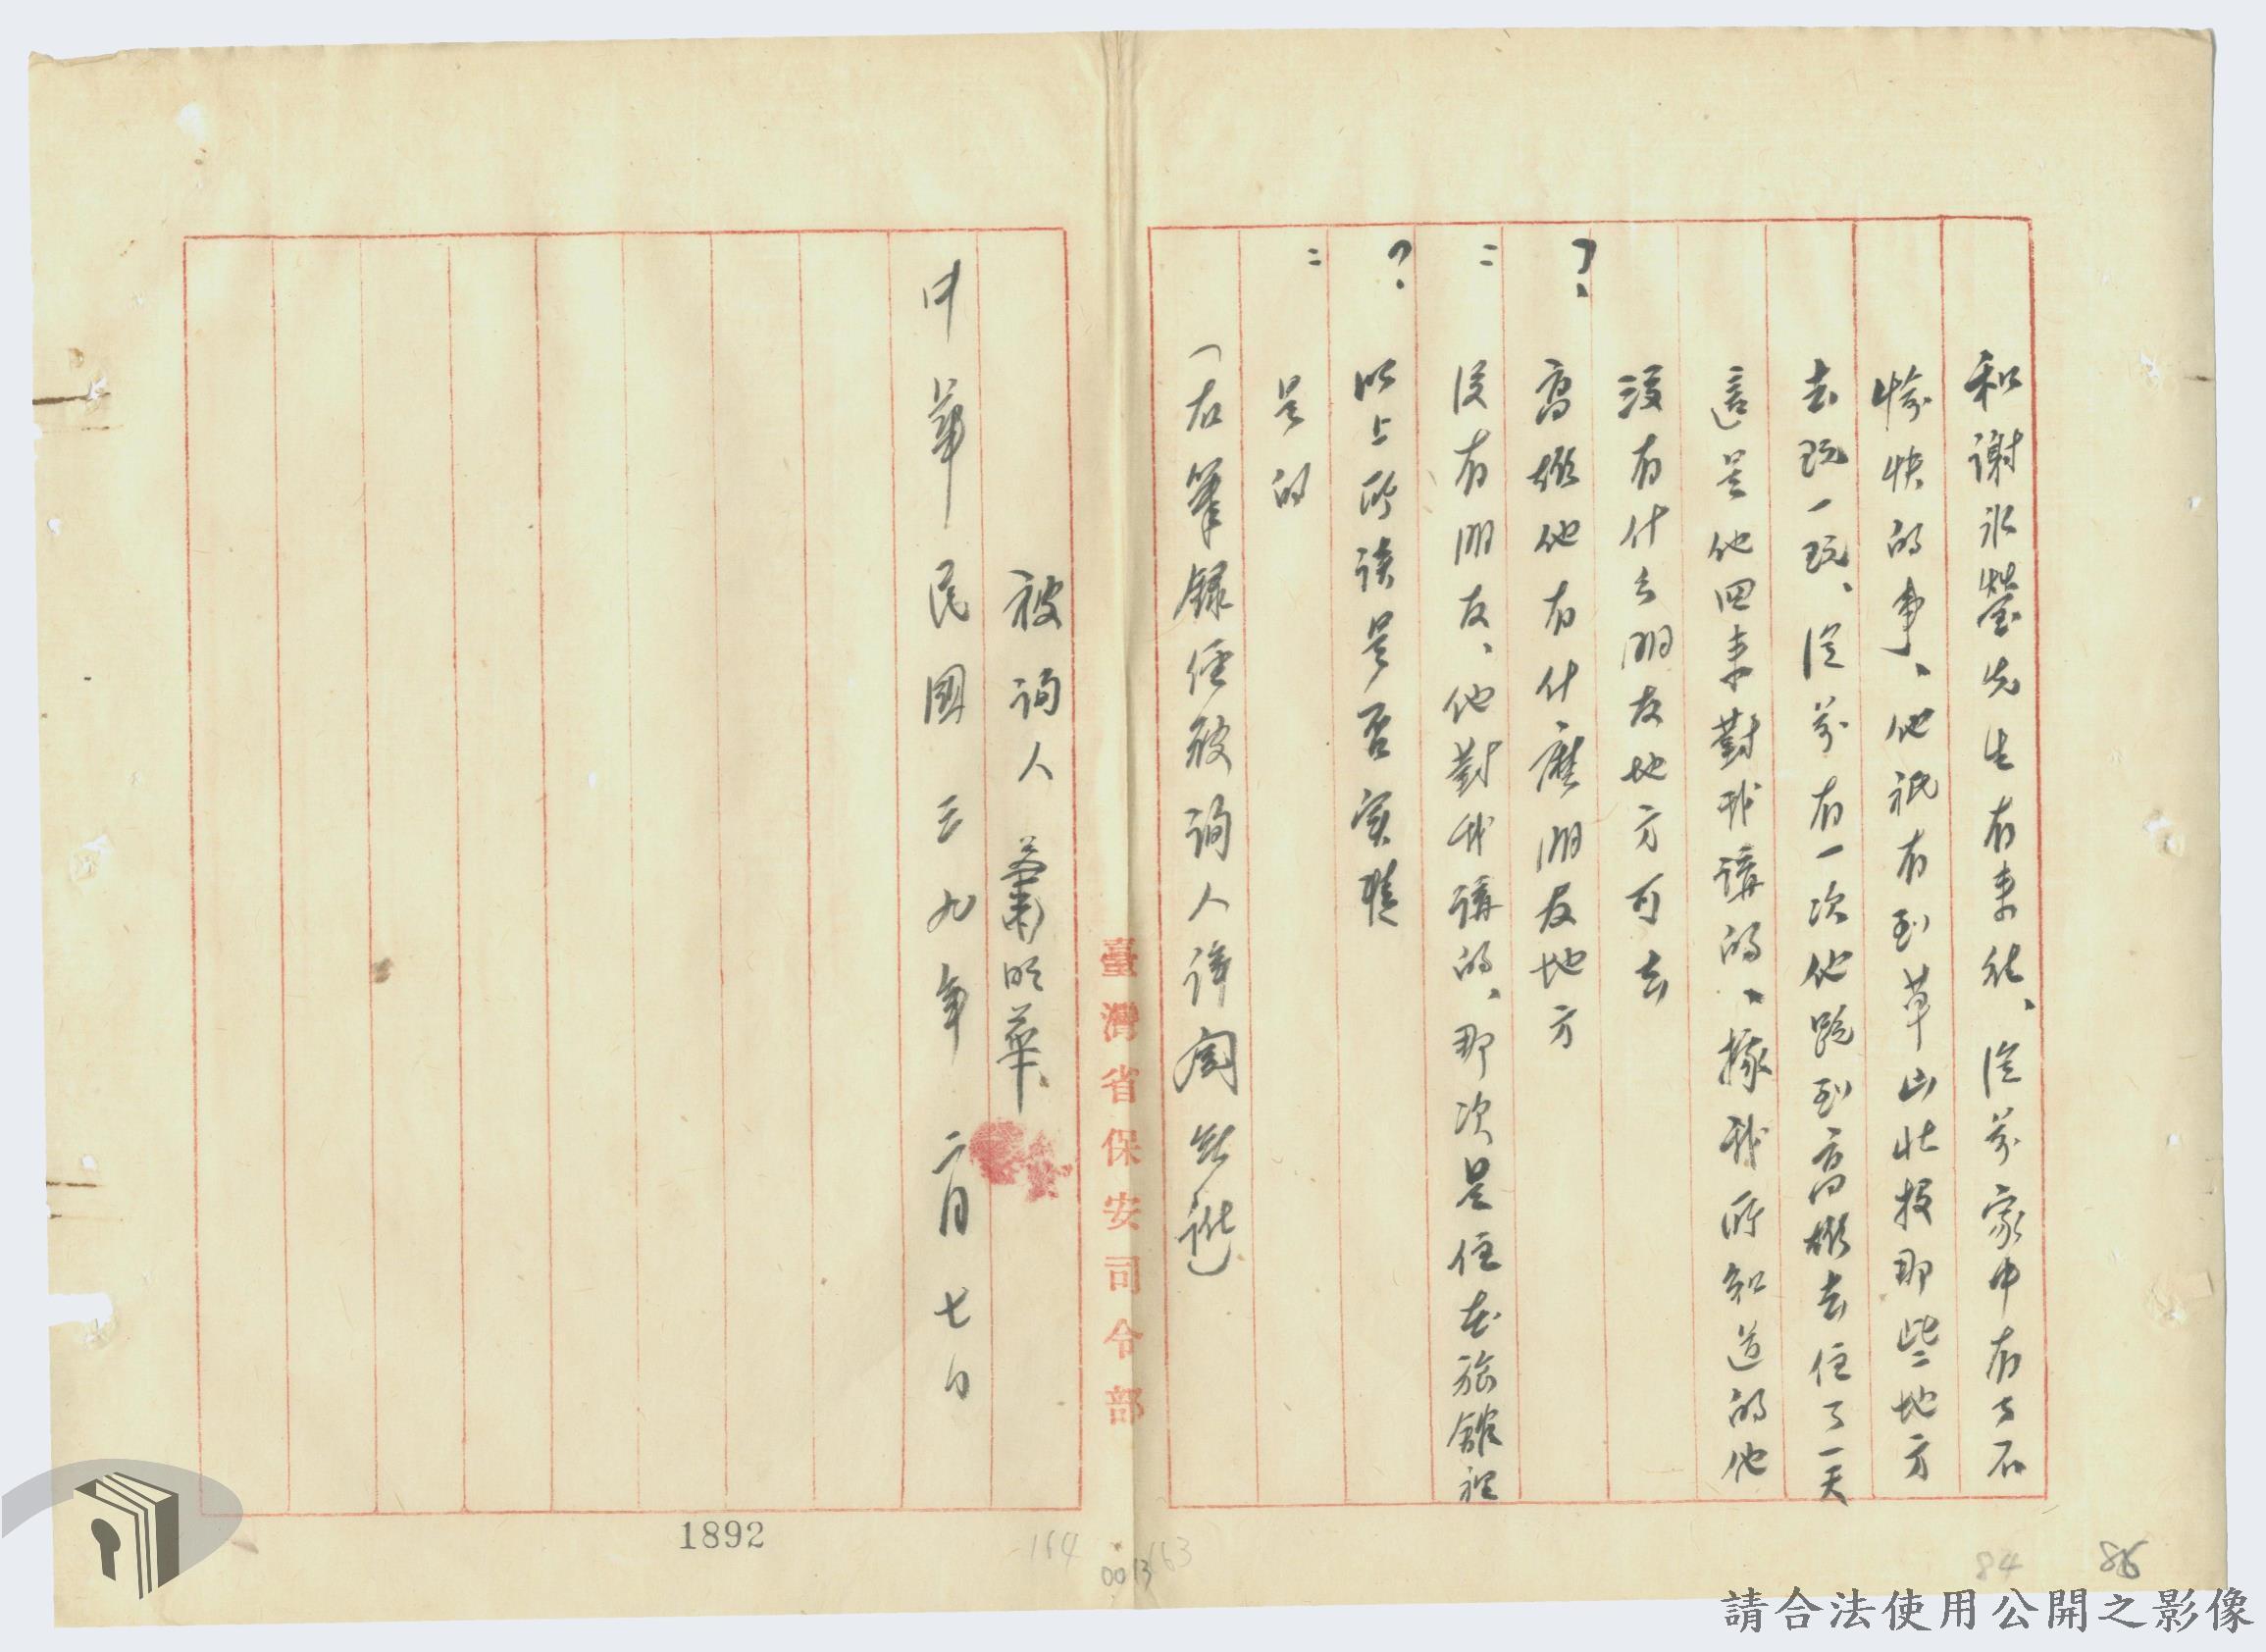 和謝冰瑩先生有來往、從前家中有了不
愉快的事、他祇有到草山北投那些地方
去玩一玩、從前有一次他跑到高雄去住了一天
這是他回來對我講的、據我所知道的他
沒有什么朋友地方可去
？高雄他有什麼朋友地方
：沒有朋友、他對我講的、那次是住在旅館裡
？以上所談是否實情
：是的
（右筆錄經被詢人詳閱無訛）
臺灣省保安司令部
被詢人 蕭明華
中華民國三九年二月七日
1892
164
163
0013
84
請合法使用公開之影像